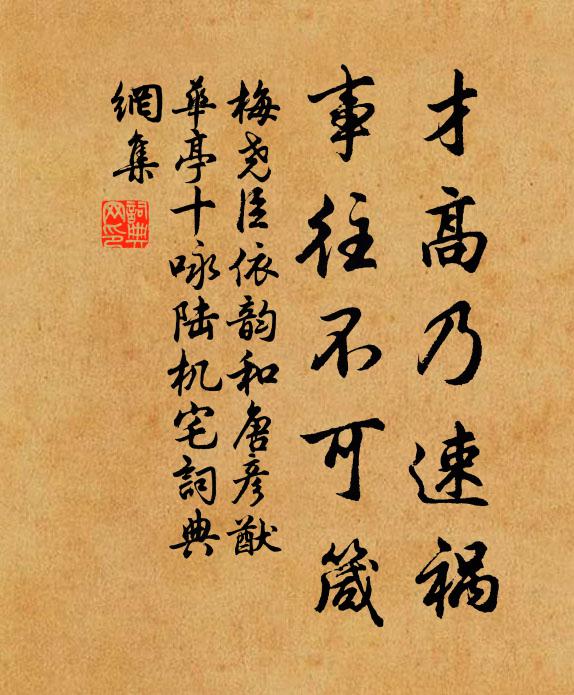 才高乃速祸
事往不可箴
梅尧臣依韵和唐彦猷
华亭十咏陆机宅詞典
網集
詞典
网印